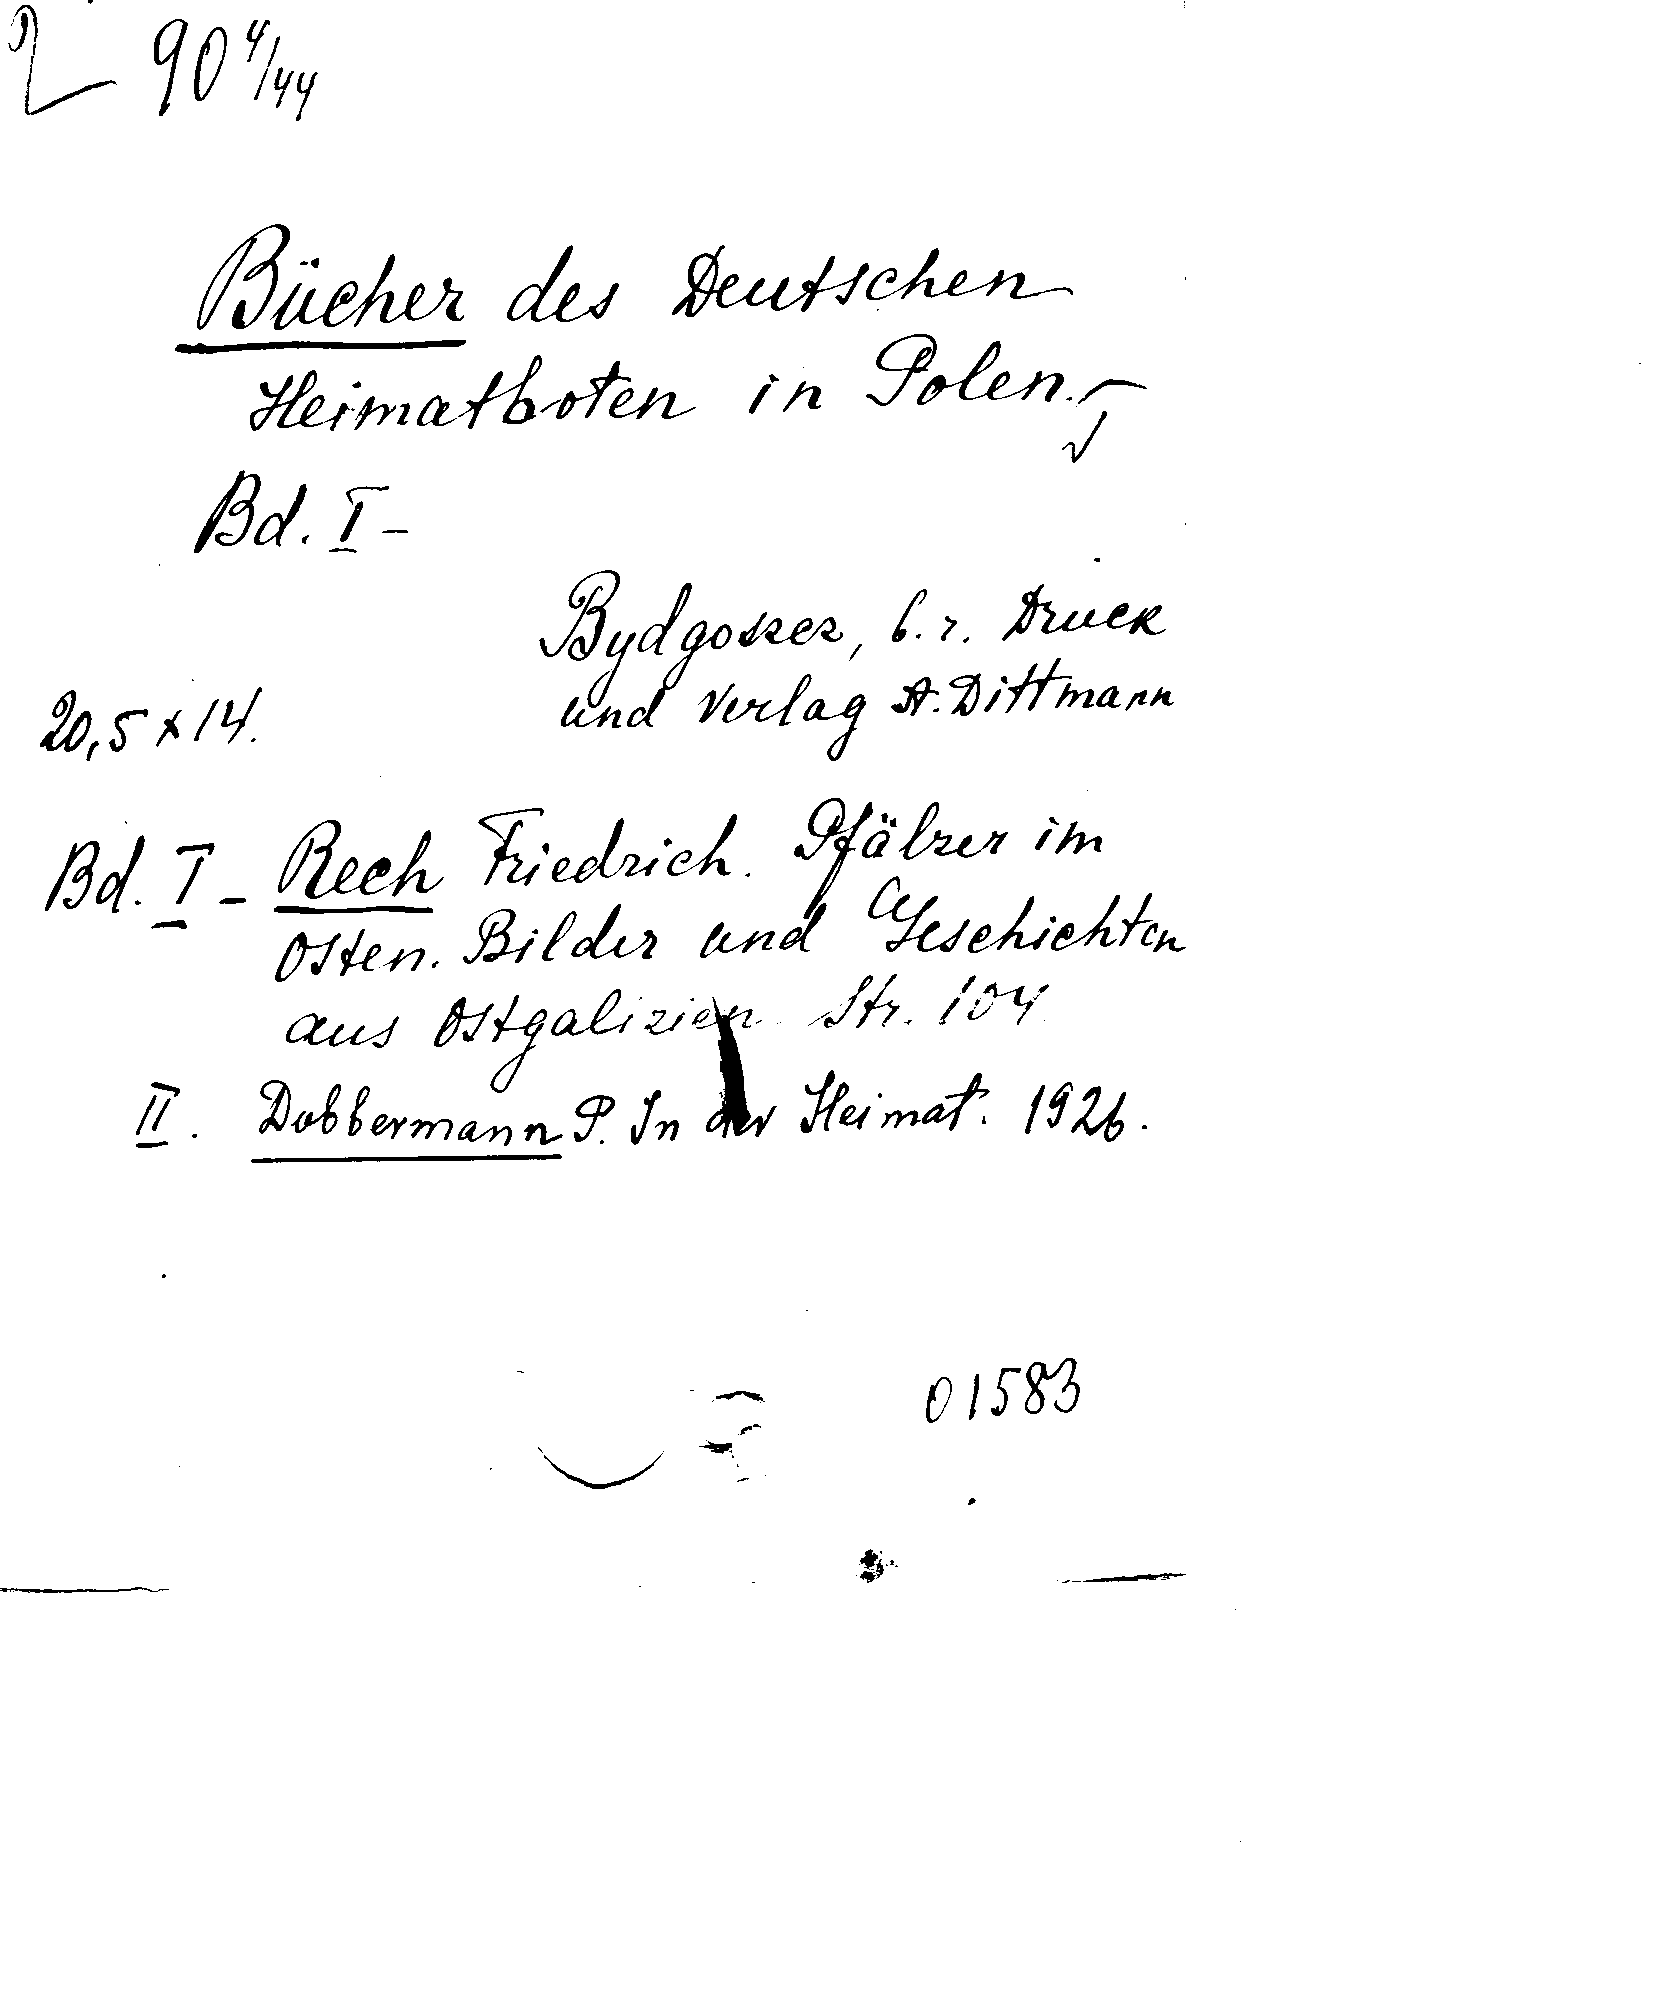 90 4/44
Bücher des Deutschen
Heimatboten in Polen.
Bd. I -
Bydgoszcz, b.r. Druck
und Verlag A. Dittmann
20,5 x 14.
Bd. I - Rech Friedrich. Pfälzer im
Osten. Bilder und Geschichten
aus Ostgalizien Str. 104
II. Dobbermann P. In der Heimat. 1926.
01583